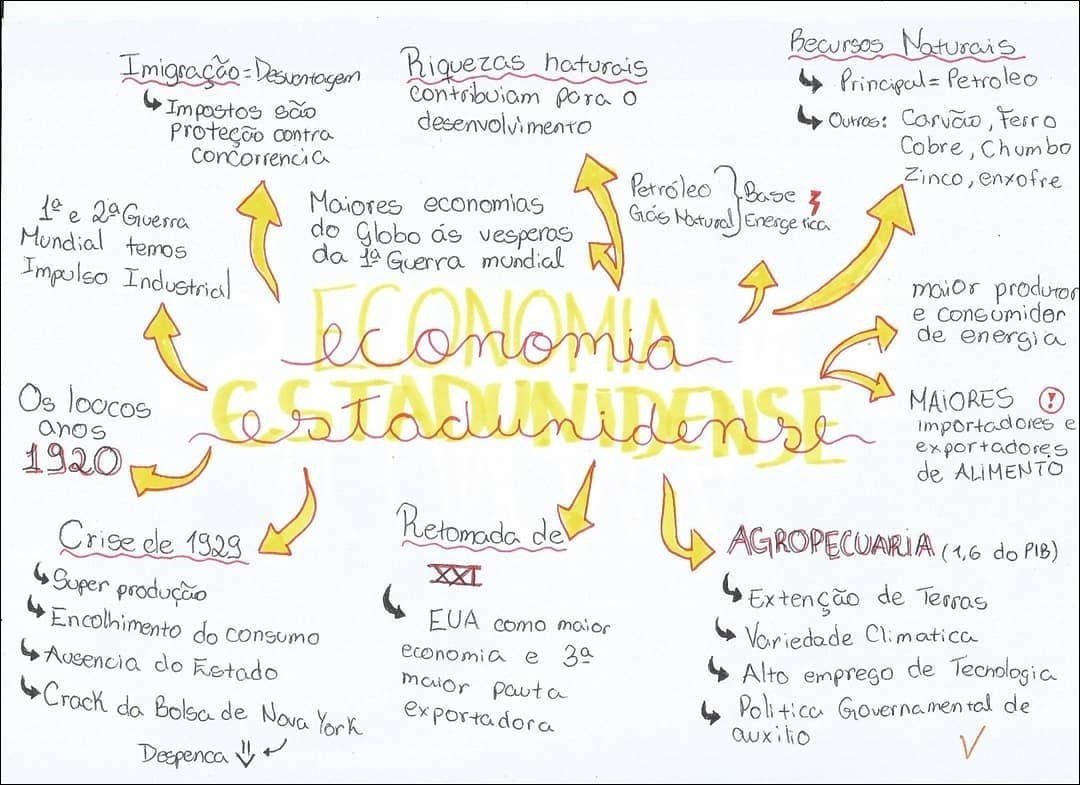 Imigração = Desvantagem
Impostos são
proteção contra
concorrencia
Riquezas naturais
contribuiam para o
desenvolvimento
Recursos Naturais
Principal = Petroleo
Outros: Carvão, Ferro
Cobre, Chumbo
Zinco, enxofre
1ª e 2ª Guerra
Mundial temos
Impulso Industrial
Maiores economias
do Globo ás vesperas
da 1ª Guerra mundial
Petróleo } Base
Gás Natural } Energetica
maior produtor
e consumidor
de energia
ECONOMIA
economia
ESTADUNIDENSE
estadunidense
MAIORES !
importadores e
exportadores
de ALIMENTO
Os loucos
anos
1920
Crise de 1929
Super produção
Encolhimento do consumo
Ausencia do Estado
Crack da Bolsa de Nova York
Despenca
Retomada de
XXI
EUA como maior
economia e 3ª
maior pauta
exportadora
AGROPECUARIA (1,6 do PIB)
Extenção de Terras
Variedade Climatica
Alto emprego de Tecnologia
Politica Governamental de
auxilio